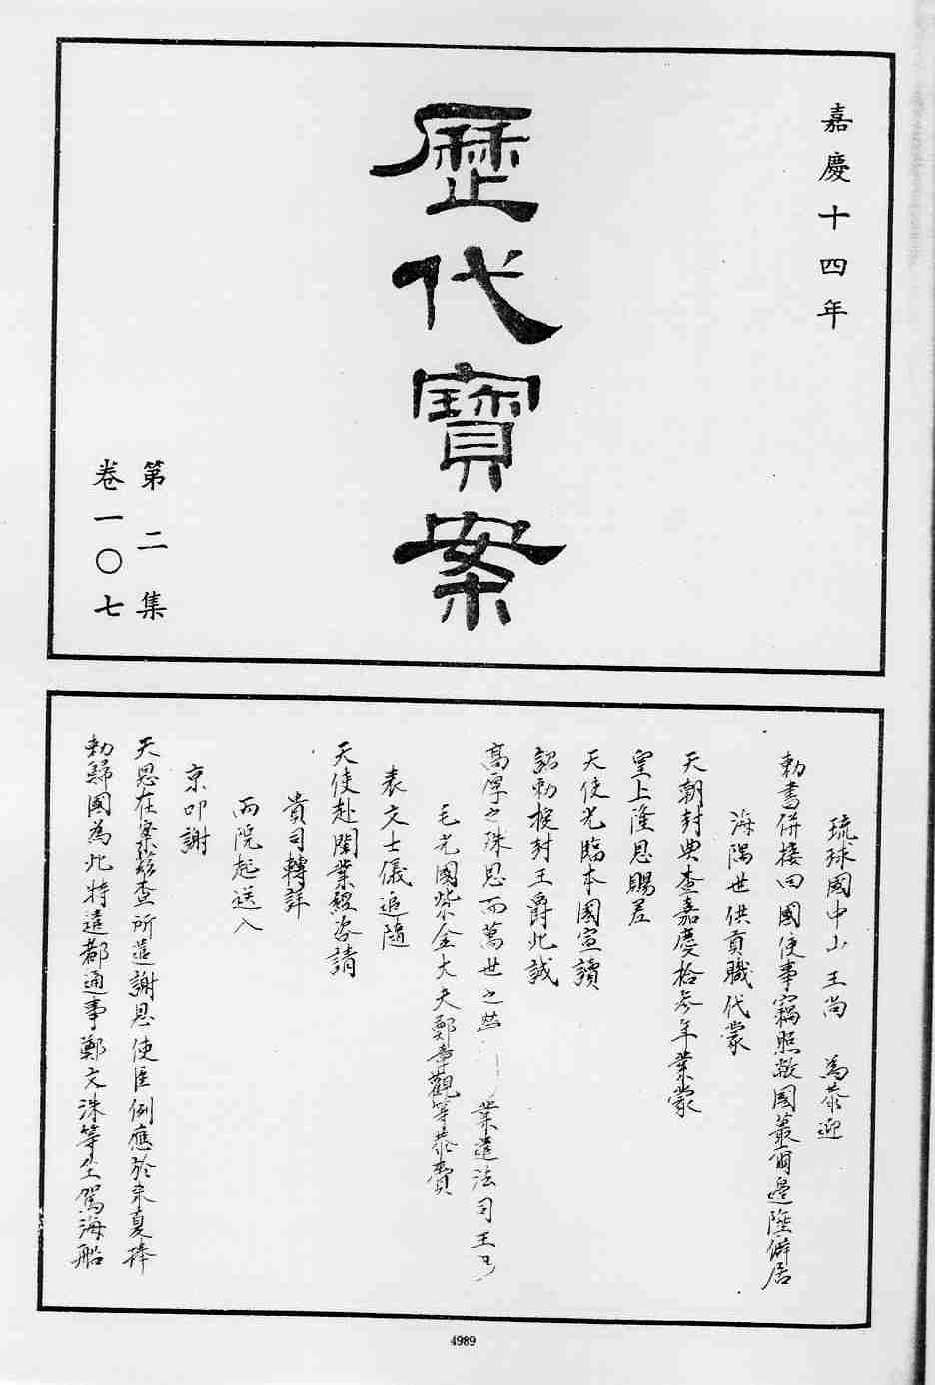 嘉慶十四年
歷代寶案
第二集
卷一〇七
琉球國中山王尚　為恭迎
勅書併接回國使事竊照敝國蕞爾邊陲僻居
海隅世供貢職代蒙
天朝封典查嘉慶拾參年業蒙
皇上隆恩賜差
天使光臨本國宣讀
詔勅㨗封王爵此誠
高厚之殊恩而萬世之　業遣法司王
毛光國紫金大夫鄭章觀等恭賫
表文土儀追隨
天使赴閩業經咨請
貴司轉詳
兩院起送入
京叩謝
天恩在案茲查所遣謝恩使臣例應於來夏捧
勅歸國為此特遣都通事鄭文洙等坐駕海船
4989